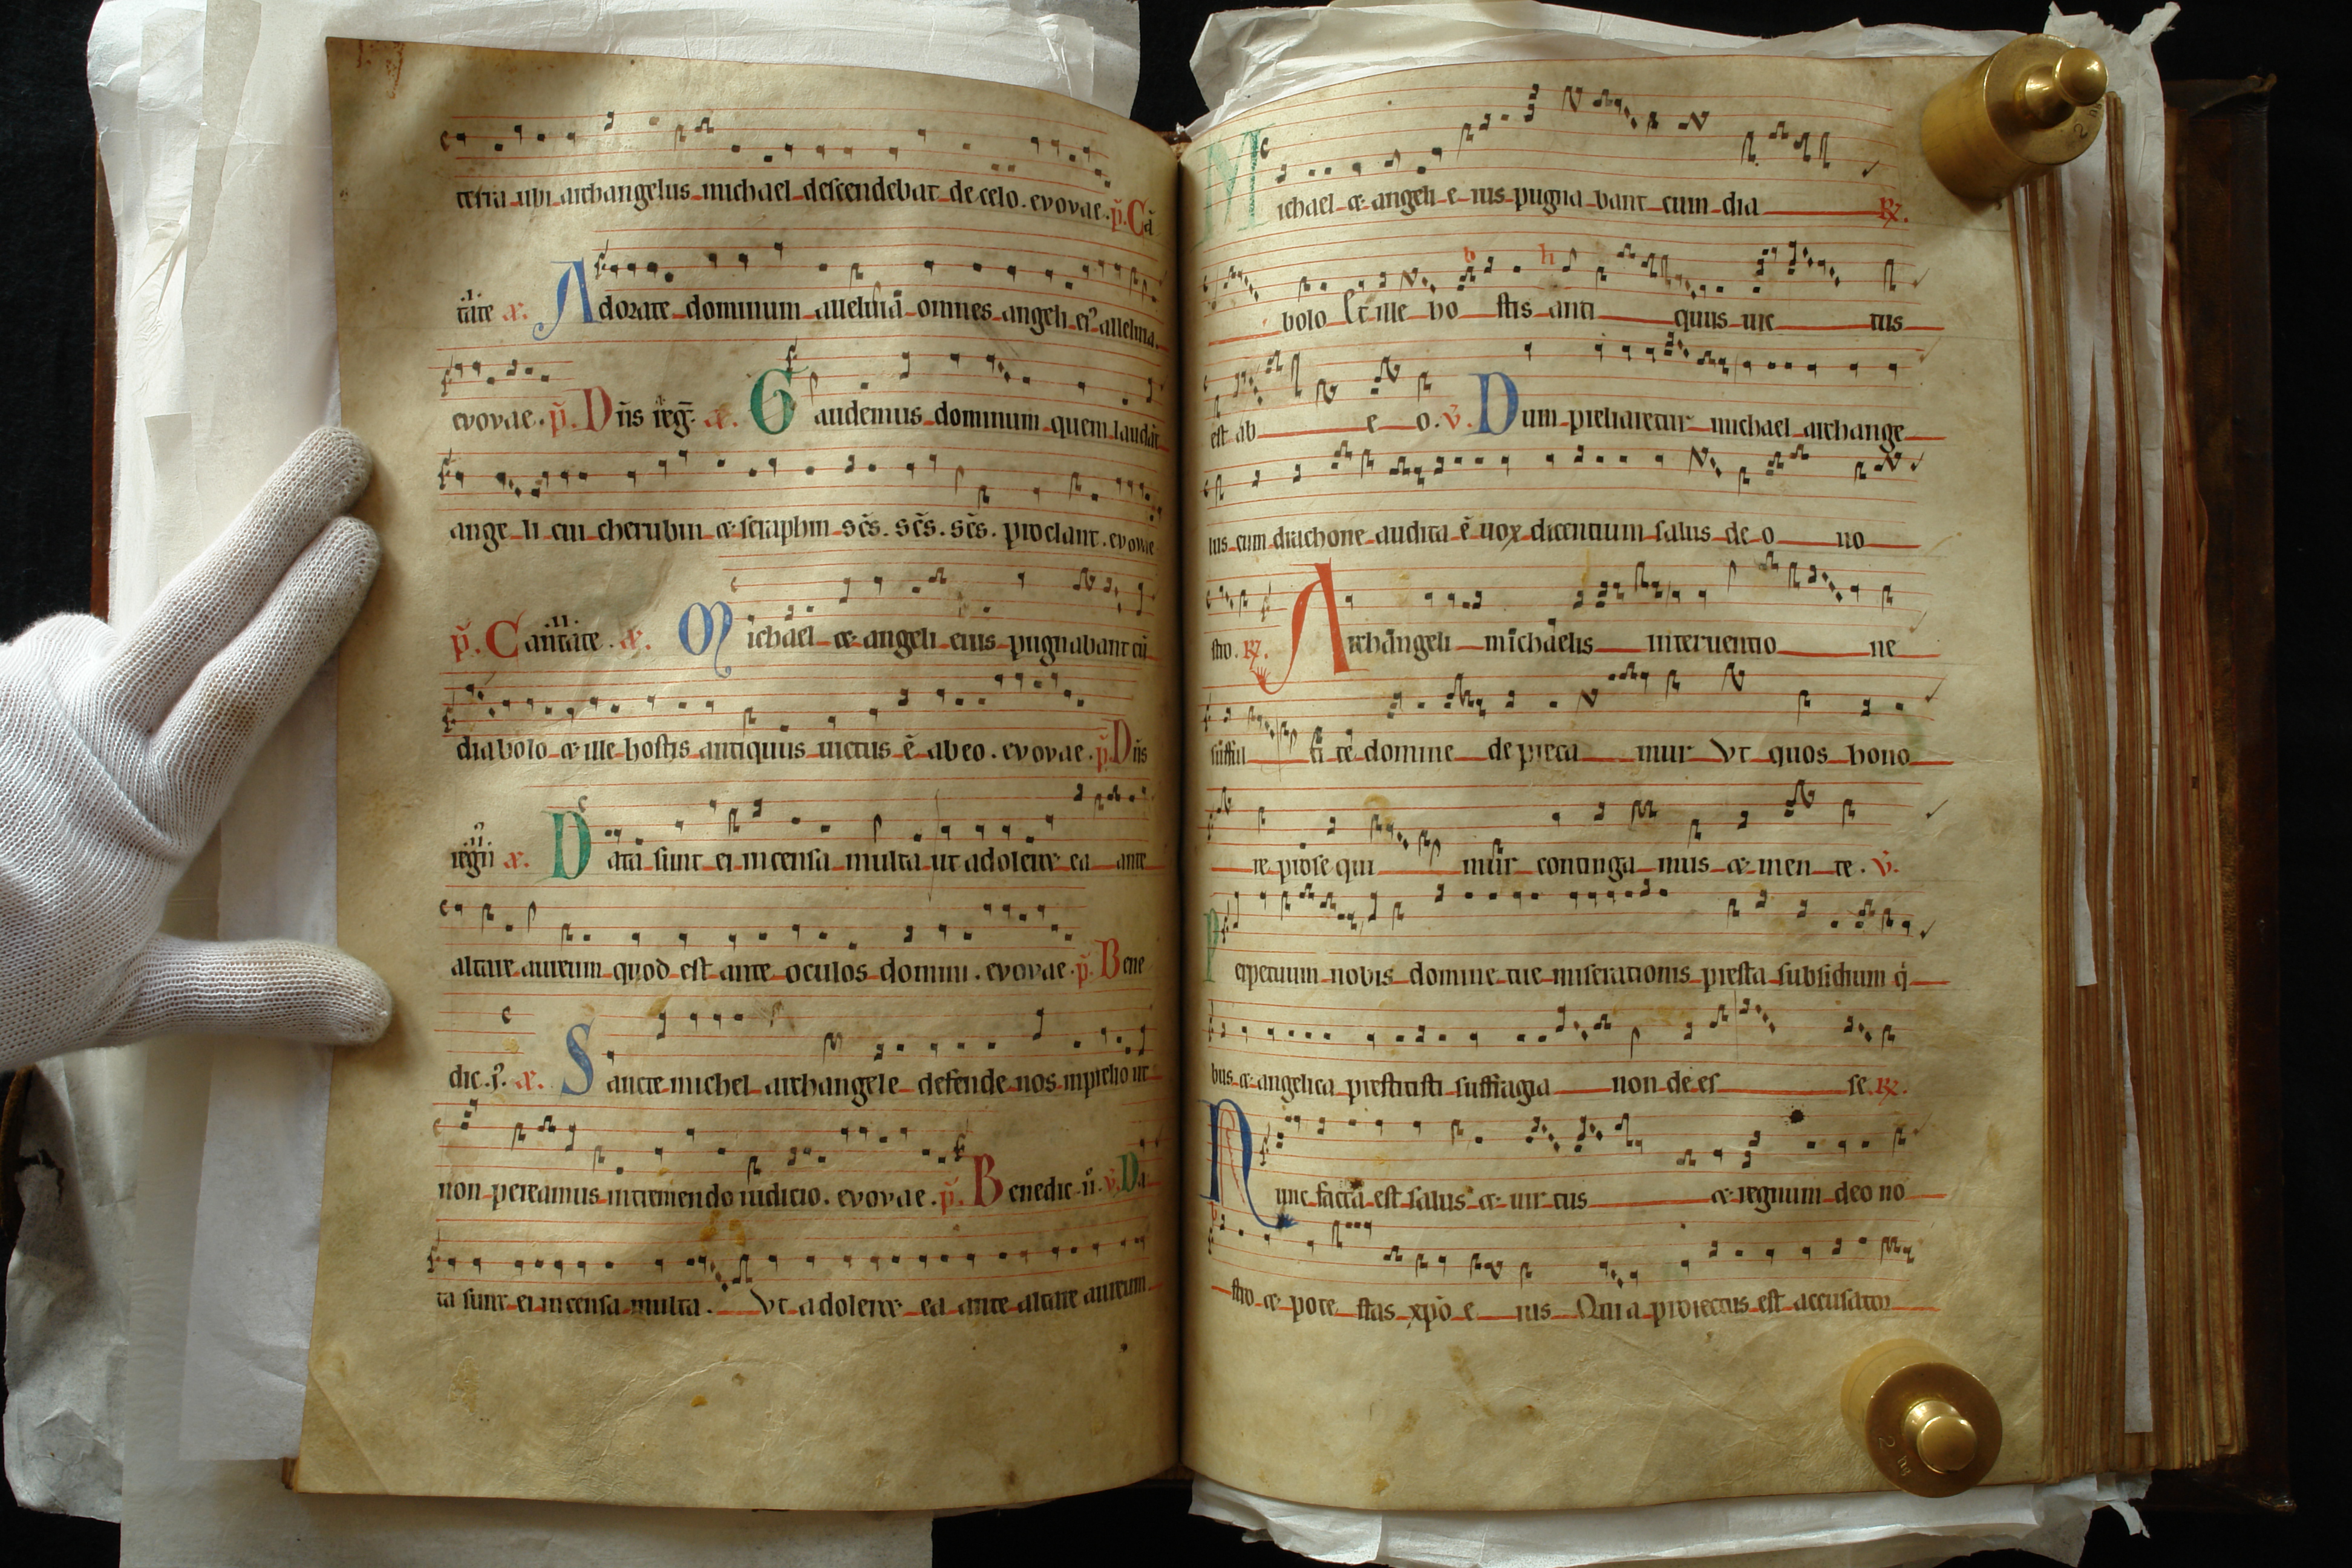 terra ubi archangelus michael descendebat de celo. evovae. p̄. Cā
.i. tate æ. Adorate dominum alleluiā omnes angeli ei⁹ alleluia.
evovae. p̄. Dn̄s reḡ. æ. Gaudemus dominum quem laudāt
ange li cui cherubin & seraphin sc̄s. sc̄s. sc̄s. proclant. evovae
p̄. Cantate .ii. æ. Michael & angeli eius pugnabant cū
diabolo & ille hostis antiquus uictus ē ab eo. evovae. p̄. Dn̄s
regn̄ .ii. æ. Data sunt ei incensa multa ut adoleret ea ante
altare aureum quod est ante oculos domini. evovae. p̄. Bene
dic. i⁹. æ. Sancte michel archangele defende nos in prelio ut
non pereamus in tremendo iudicio. evovae. p̄. Benedic ii. v̄. Da
ta sunt ei incensa multa. Vt adoleret ea ante altare aureum
Michael & angeli e ius pugna bant cum dia R̸.
b h
bolo Et ille ho stis anti quus uic tus
est ab e o. v̄. Dum preliaretur michael archange
lus cum drachone audita ē uox dicentium salus de o no
stro. R̸. Archangeli michaelis interuentio ne
sufful ti te domine depreca mur Vt quos hono
re prose qui mur continga mus & men te. v̄.
Perpetuum nobis domine tue miserationis presta subsidium q̇
bus & angelica prestitisti suffragia non de es se R̸.
Nunc facta est salus & uir tus & regnum deo no
stro & pote stas xp̄o e ius Quia proiectus est accusator
2
2